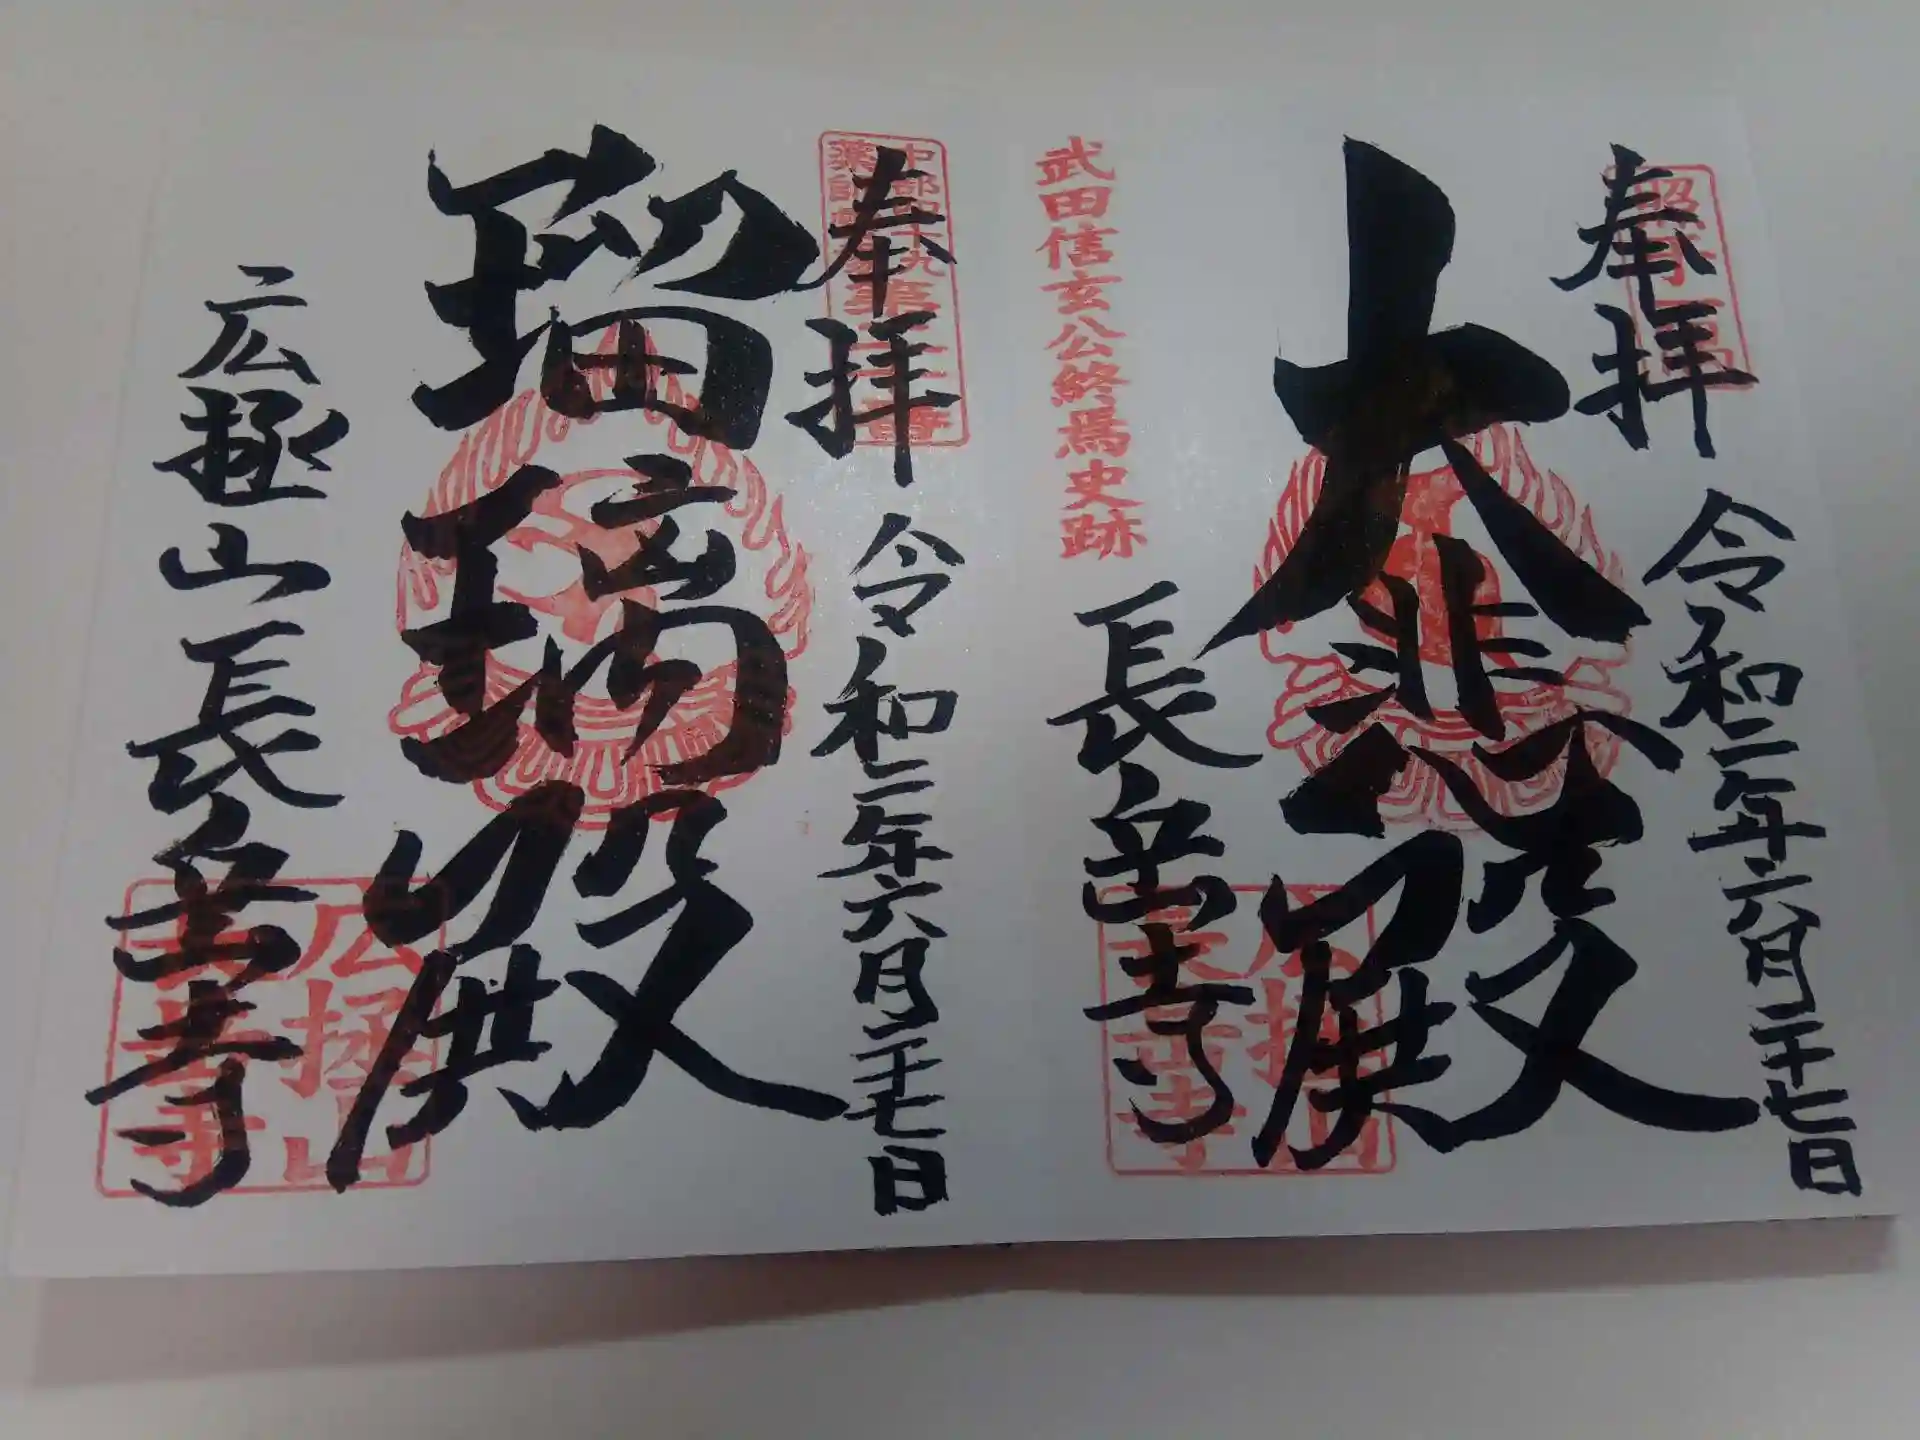 奉拝
令和二年六月二十七日
大悲殿
長岳寺
武田信玄公終焉史跡
奉拝
令和二年六月二十七日
瑠璃殿
広拯山長岳寺
広拯山
長岳寺